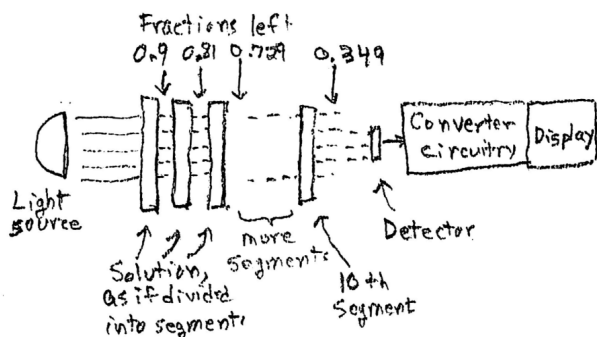 Fractions left
0.9 0.81 0.729 0.349
Converter
circuitry
Display
Light
source
Detector
more
segments
Solution,
as if divided
into segments
10th
segment